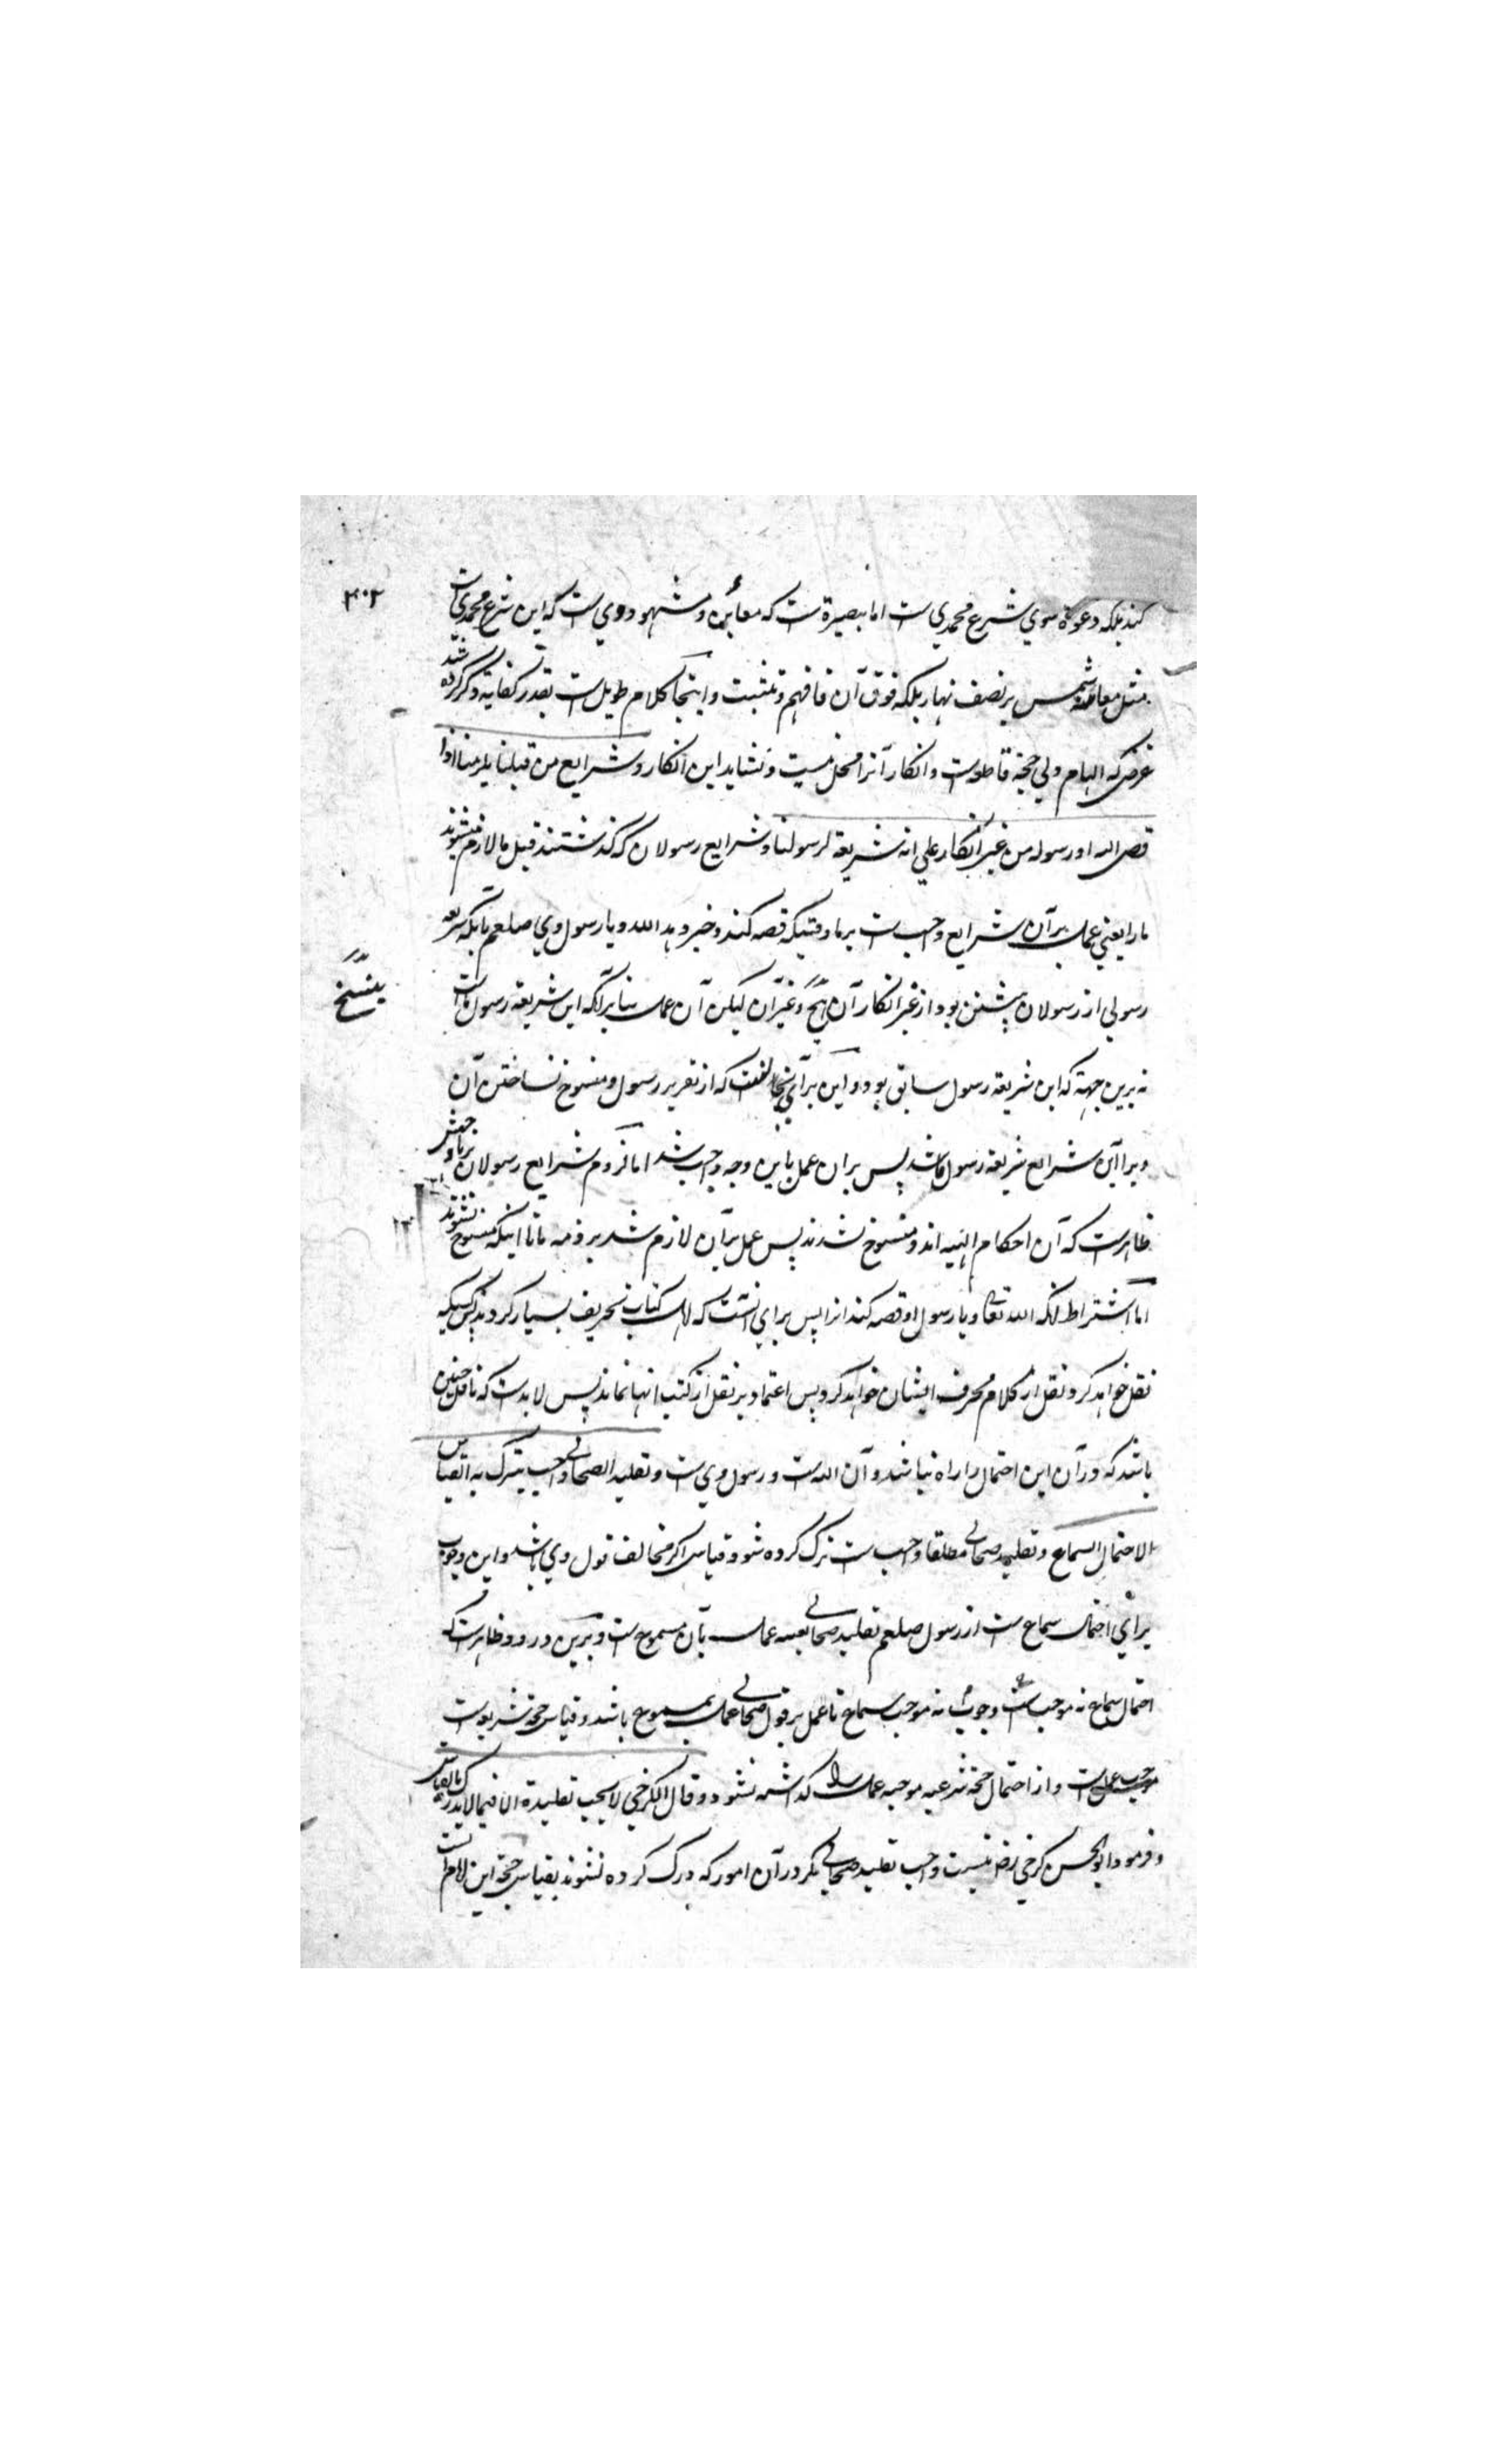 ۳۰۲
کند بلکه دعوة سوي شرع محمدي ست اما ببصیرة ست که معائن و مشهود وي ست که این شرع محمدي ست
مثل معائنه شمس بر نصف نهار بلکه فوق آن فافهم و تثبت و اینجا کلام طویل ست بقدر کفایة ذکر کرده شد
غرض که الهام ولي حجة قاطعه است و انکار آنرا محل نیست و نشاید این انکار و شرایع من قبلنا یلزمنا اذا
قص الله او رسوله من غیر انکار علي انه شریعة لرسولنا و شرایع رسولان که گذشتند قبل ما لازم میشوند
ما را یعني عمل بر آن شرایع واجب ست بر ما وقتیکه قصه کند و خبر دهد الله و یا رسول وي صلعم بآنکه شریعة
رسولي از رسولان پیشین بود از غیر انکار آن و غیر آن لیکن آن عمل بنا بر آنکه این شریعة رسول ما ست
بنسخ
نه برین جهة که این شریعة رسول سابق بود و این براي آنست که از تقریر رسول و منسوخ نساختن آن
ویرا این شرایع شریعة رسول ما شد پس بران عمل باین وجه واجب شد اما لزوم شرایع رسولان بر ما
ظاهر ست که آن احکام الهیه اند و منسوخ نشدند پس عمل بر آن لازم شد بر ذمه ما تا اینکه منسوخ نشوند
اما اشتراط آنکه الله تعالی و یا رسول او قصه کند از ا پس براي آنست که اهل کتاب تحریف بسیار کردند پس کسیکه
نقل خواهد کرد نقل از کلام محرف ایشان خواهد کرد پس اعتماد بر نقل از کتب انها نماند پس لابد ست که ناقل چنین
باشد که در آن این احتمال را راه نباشد و آن الله ست و رسول وي ست و تقلید الصحابي واجب یترک به القیاس
لاحتمال السماع و تقلید صحابي مطلقا واجب ست ترک کرده شود قیاس اگر مخالف قول وي باشد و این وجوب
براي احتمال سماع ست از رسول صلعم تقلید صحابي بعینه عمل بآن مسموع ست و برین درود ظاهر ست که
احتمال سماع نه موجب وجوب نه موجب سماع تا عمل بر قول صحابي عمل بمسموع باشد و قیاس حجة شرعیه است
موجب عمل ست و از احتمال حجة شرعیه موجبه عمل را گذاشته نشود و قال الکرخي لا یجب تقلیده الا فیما لا یدرک بالقیاس
و فرمود ابو الحسن کرخي رض نیست واجب تقلید صحابي مگر در آن امور که درک کرده نشوند بقیاس حجة این امام آنست